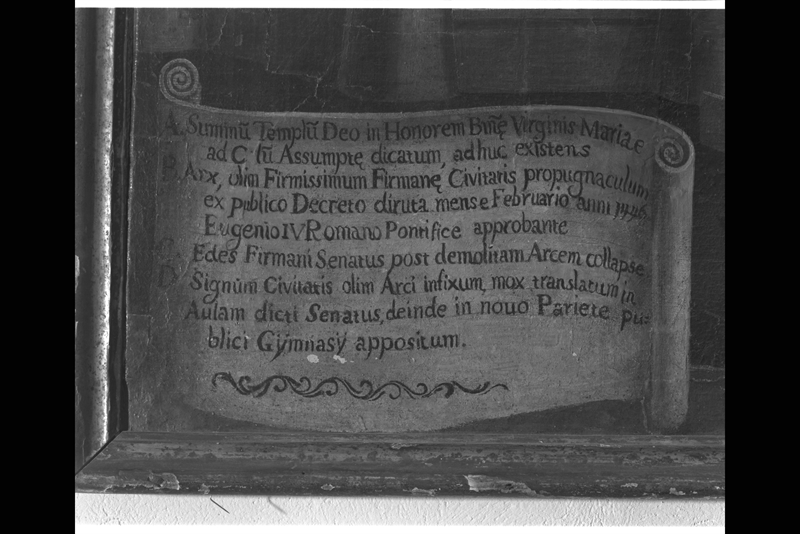 A. Summũ Templũ Deo in Honorem Bmę Virginis Mariæ
ad C lũ Assumptę dicatum, adhuc existens
B. Arx, olim Firmissimum Firmanę Civitatis propugnaculum
ex publico Decreto diruta mense Februario anni 1446
Eugenio IV Romano Pontifice approbante
Edes Firmani Senatus post demolitam Arcem collapse
Signum Civitatis olim Arci infixum, mox translatum in
Aulam dicti Senatus, deinde in nouo Pariete pu=
blici Gÿmnasÿ appositum.